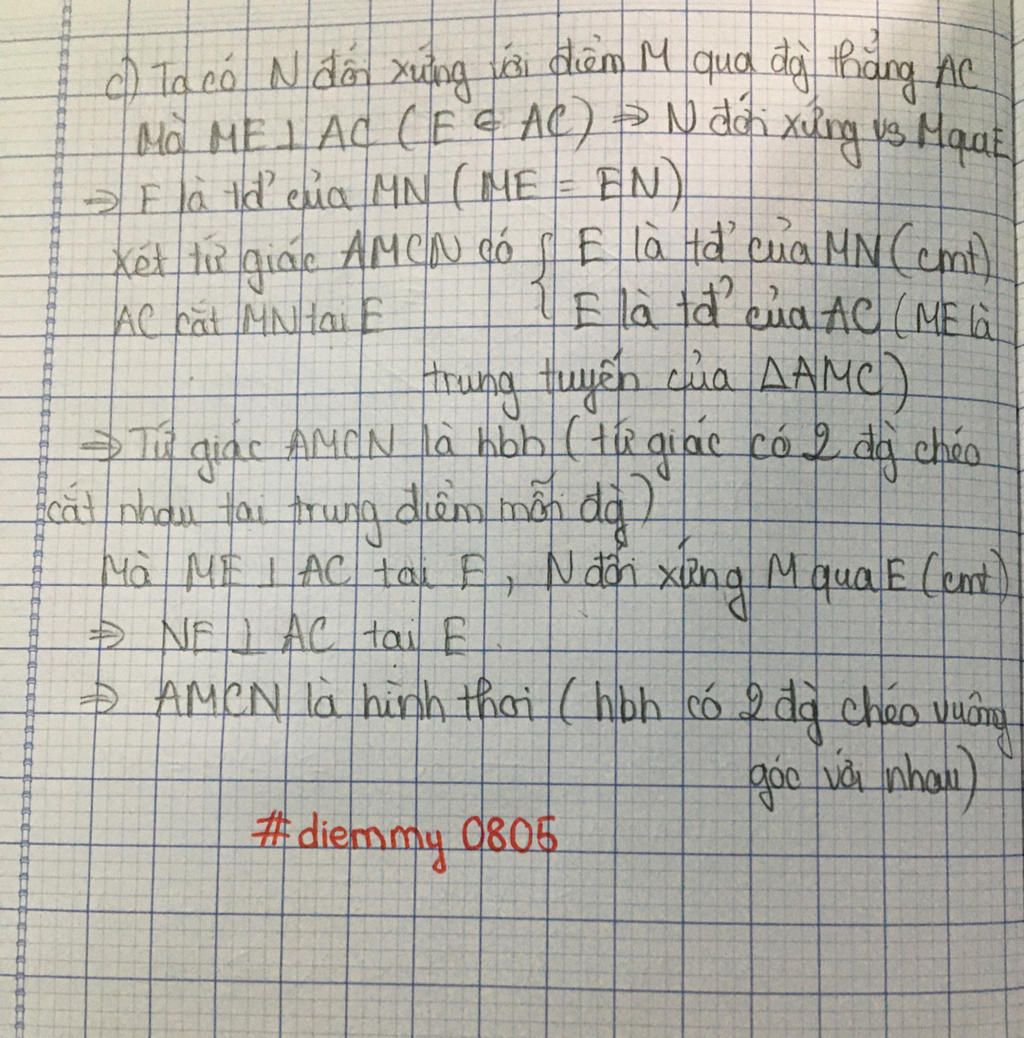 c) Ta có N đối xứng với điểm M qua đg̀ thẳng AC
Mà ME ⊥ AC (E ∈ AC) ⇒ N đối xứng vs M qua E
⇒ E là tđ' của MN (ME = EN)
Xét tứ giác AMCN có { E là tđ' của MN (cmt)
AC cắt MN tại E { E là tđ' của AC (ME là
trung tuyến của ΔAMC)
⇒ Tứ giác AMCN là hbh (tứ giác có 2 đg̀ chéo
cắt nhau tại trung điểm mỗi đg̀)
Mà ME ⊥ AC tại E, N đối xứng M qua E (cmt)
⇒ NE ⊥ AC tại E.
⇒ AMCN là hình thoi (hbh có 2 đg̀ chéo vuông
góc với nhau)
#diemmy 0805